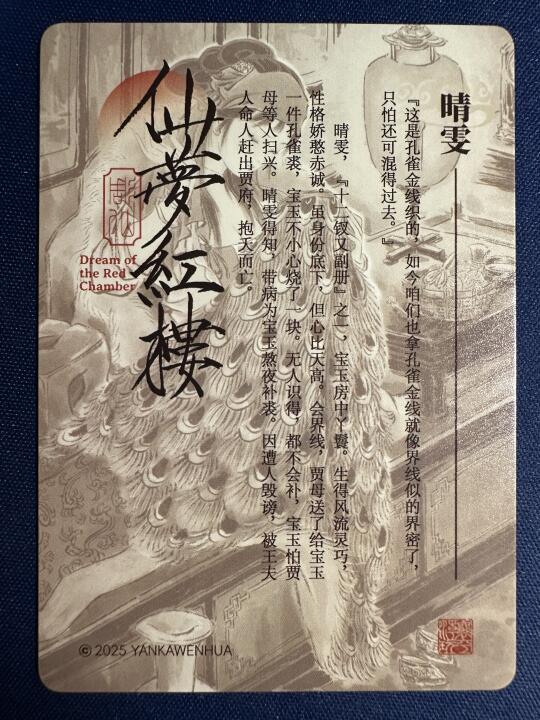 晴雯
『这是孔雀金线织的，如今咱们也拿孔雀金线就像界线似的界密了，
只怕还可混得过去。』
晴雯，『十二钗又副册』之一，宝玉房中丫鬟。生得风流灵巧，
性格娇憨赤诚。虽身份底下，但心比天高。会界线，贾母送了给宝玉
一件孔雀裘，宝玉不小心烧了一块。无人识得，都不会补，宝玉怕贾
母等人扫兴。晴雯得知，带病为宝玉熬夜补裘。因遭人毁谤，被王夫
人命人赶出贾府，抱夭而亡。
仙夢紅樓
Dream of
the Red
Chamber
© 2025 YANKAWENHUA